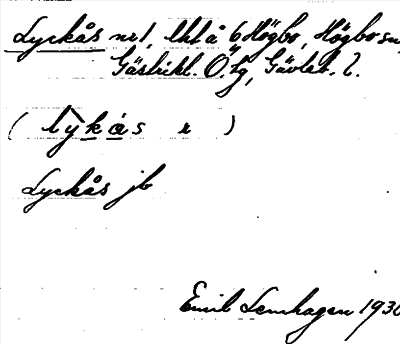 Lyckås nr 1, lht å 6 Högbo, Högbo sn,
Gästrikl. Ö. tg, Gävleb. l.
( lykås r )
Lyckås jb
Emil Lenhagen 1930